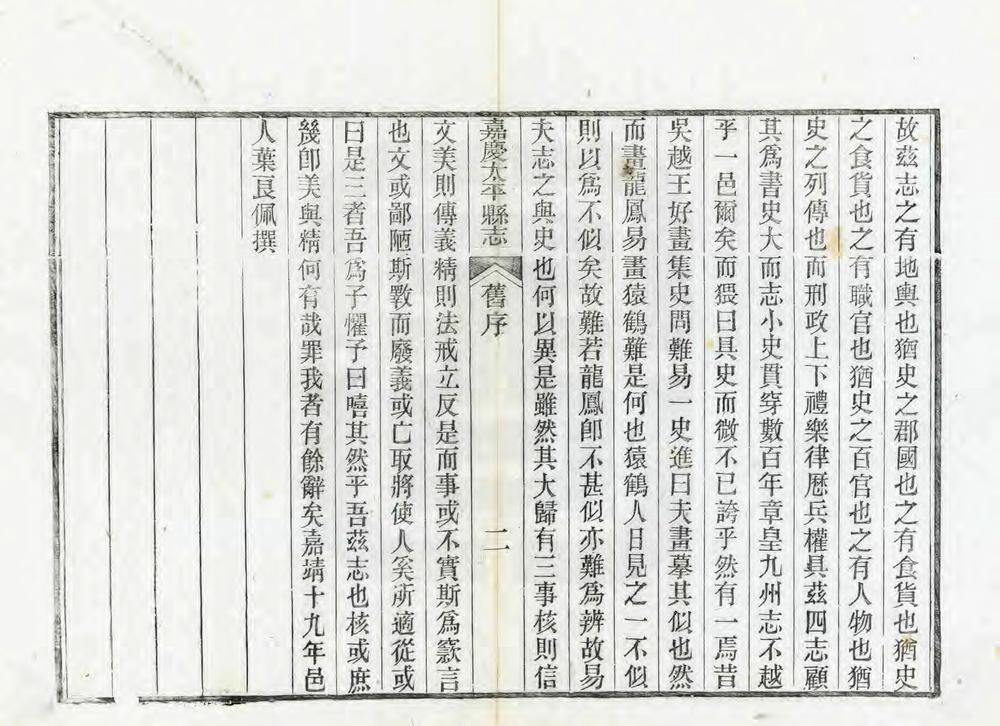 故茲志之有地輿也猶史之郡國也之有食貨也猶史
之食貨也之有職官也猶史之百官也之有人物也猶
史之列傳也而刑政上下禮樂律厯兵權具茲四志顧
其爲書史大而志小史貫穿數百年章皇九州志不越
乎一邑爾矣而猥曰具史而微不已誇乎然有一焉昔
吳越王好畫集史問難易一史進曰夫畫摹其似也然
而畫龍鳳易畫猿鶴難是何也猿鶴人日見之一不似
則以爲不似矣故難若龍鳳卽不甚似亦難爲辨故易
夫志之與史也何以異是雖然其大歸有三事核則信
嘉慶太平縣志 舊序 二
文美則傳義精則法戒立反是而事或不實斯爲窾言
也文或鄙陋斯斁而廢義或亡取將使人奚所適從或
曰是三者吾爲子懼予曰嘻其然乎吾茲志也核或庶
幾卽美與精何有哉罪我者有餘辭矣嘉靖十九年邑
人葉良佩撰